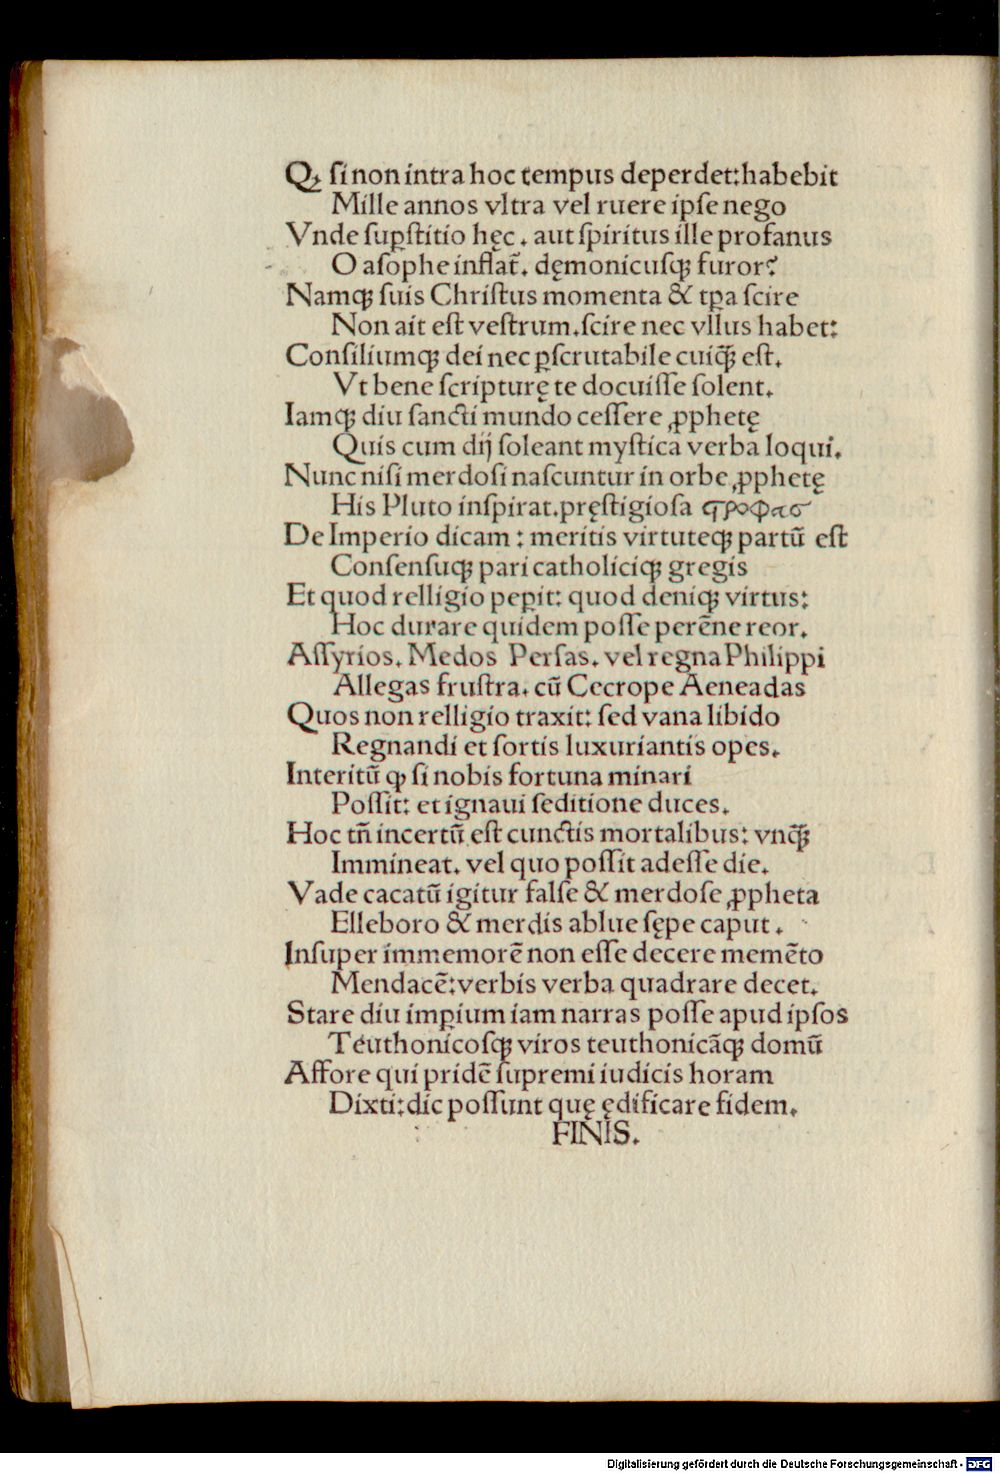 Qꝫ si non intra hoc tempus deperdet:habebit
Mille annos vltra vel ruere ipse nego
Vnde suꝑstitio hęc. aut spiritus ille profanus
O asophe inflat̃. dęmonicusqꝫ furor?
Namqꝫ suis Christus momenta & tꝑa scire
Non ait est vestrum.scire nec vllus habet:
Consiliumqꝫ dei nec ꝑscrutabile cuiq̃ꝫ est.
Vt bene scripturę te docuisse solent.
Iamqꝫ diu sancti mundo cessere ꝓphetę
Quis cum dij soleant mystica verba loqui.
Nunc nisi merdosi nascuntur in orbe ꝓphetę
His Pluto inspirat.pręstigiosa
De Imperio dicam: meritis virtuteqꝫ partũ est
Consensuqꝫ pari catholiciqꝫ gregis
Et quod relligio peꝑit: quod deniqꝫ virtus:
Hoc durare quidem posse perẽne reor.
Assyrios. Medos Persas. vel regna Philippi
Allegas frustra. cũ Cecrope Aeneadas
Quos non relligio traxit: sed vana libido
Regnandi et sortis luxuriantis opes.
Interitũ ꝙ si nobis fortuna minari
Possit: et ignaui seditione duces.
Hoc tñ incertũ est cunctis mortalibus: vnq̃ꝫ
Immineat. vel quo possit adesse die.
Vade cacatũ igitur false & merdose ꝓpheta
Elleboro & merdis ablue sępe caput.
Insuper immemorẽ non esse decere memẽto
Mendacẽ:verbis verba quadrare decet.
Stare diu imꝑium iam narras posse apud ipsos
Teuthonicosqꝫ viros teuthonicãqꝫ domũ
Affore qui pridẽ supremi iudicis horam
Dixti:dic possunt quę ędificare fidem.
FINIS.
Digitalisierung gefördert durch die Deutsche Forschungsgemeinschaft - DFG